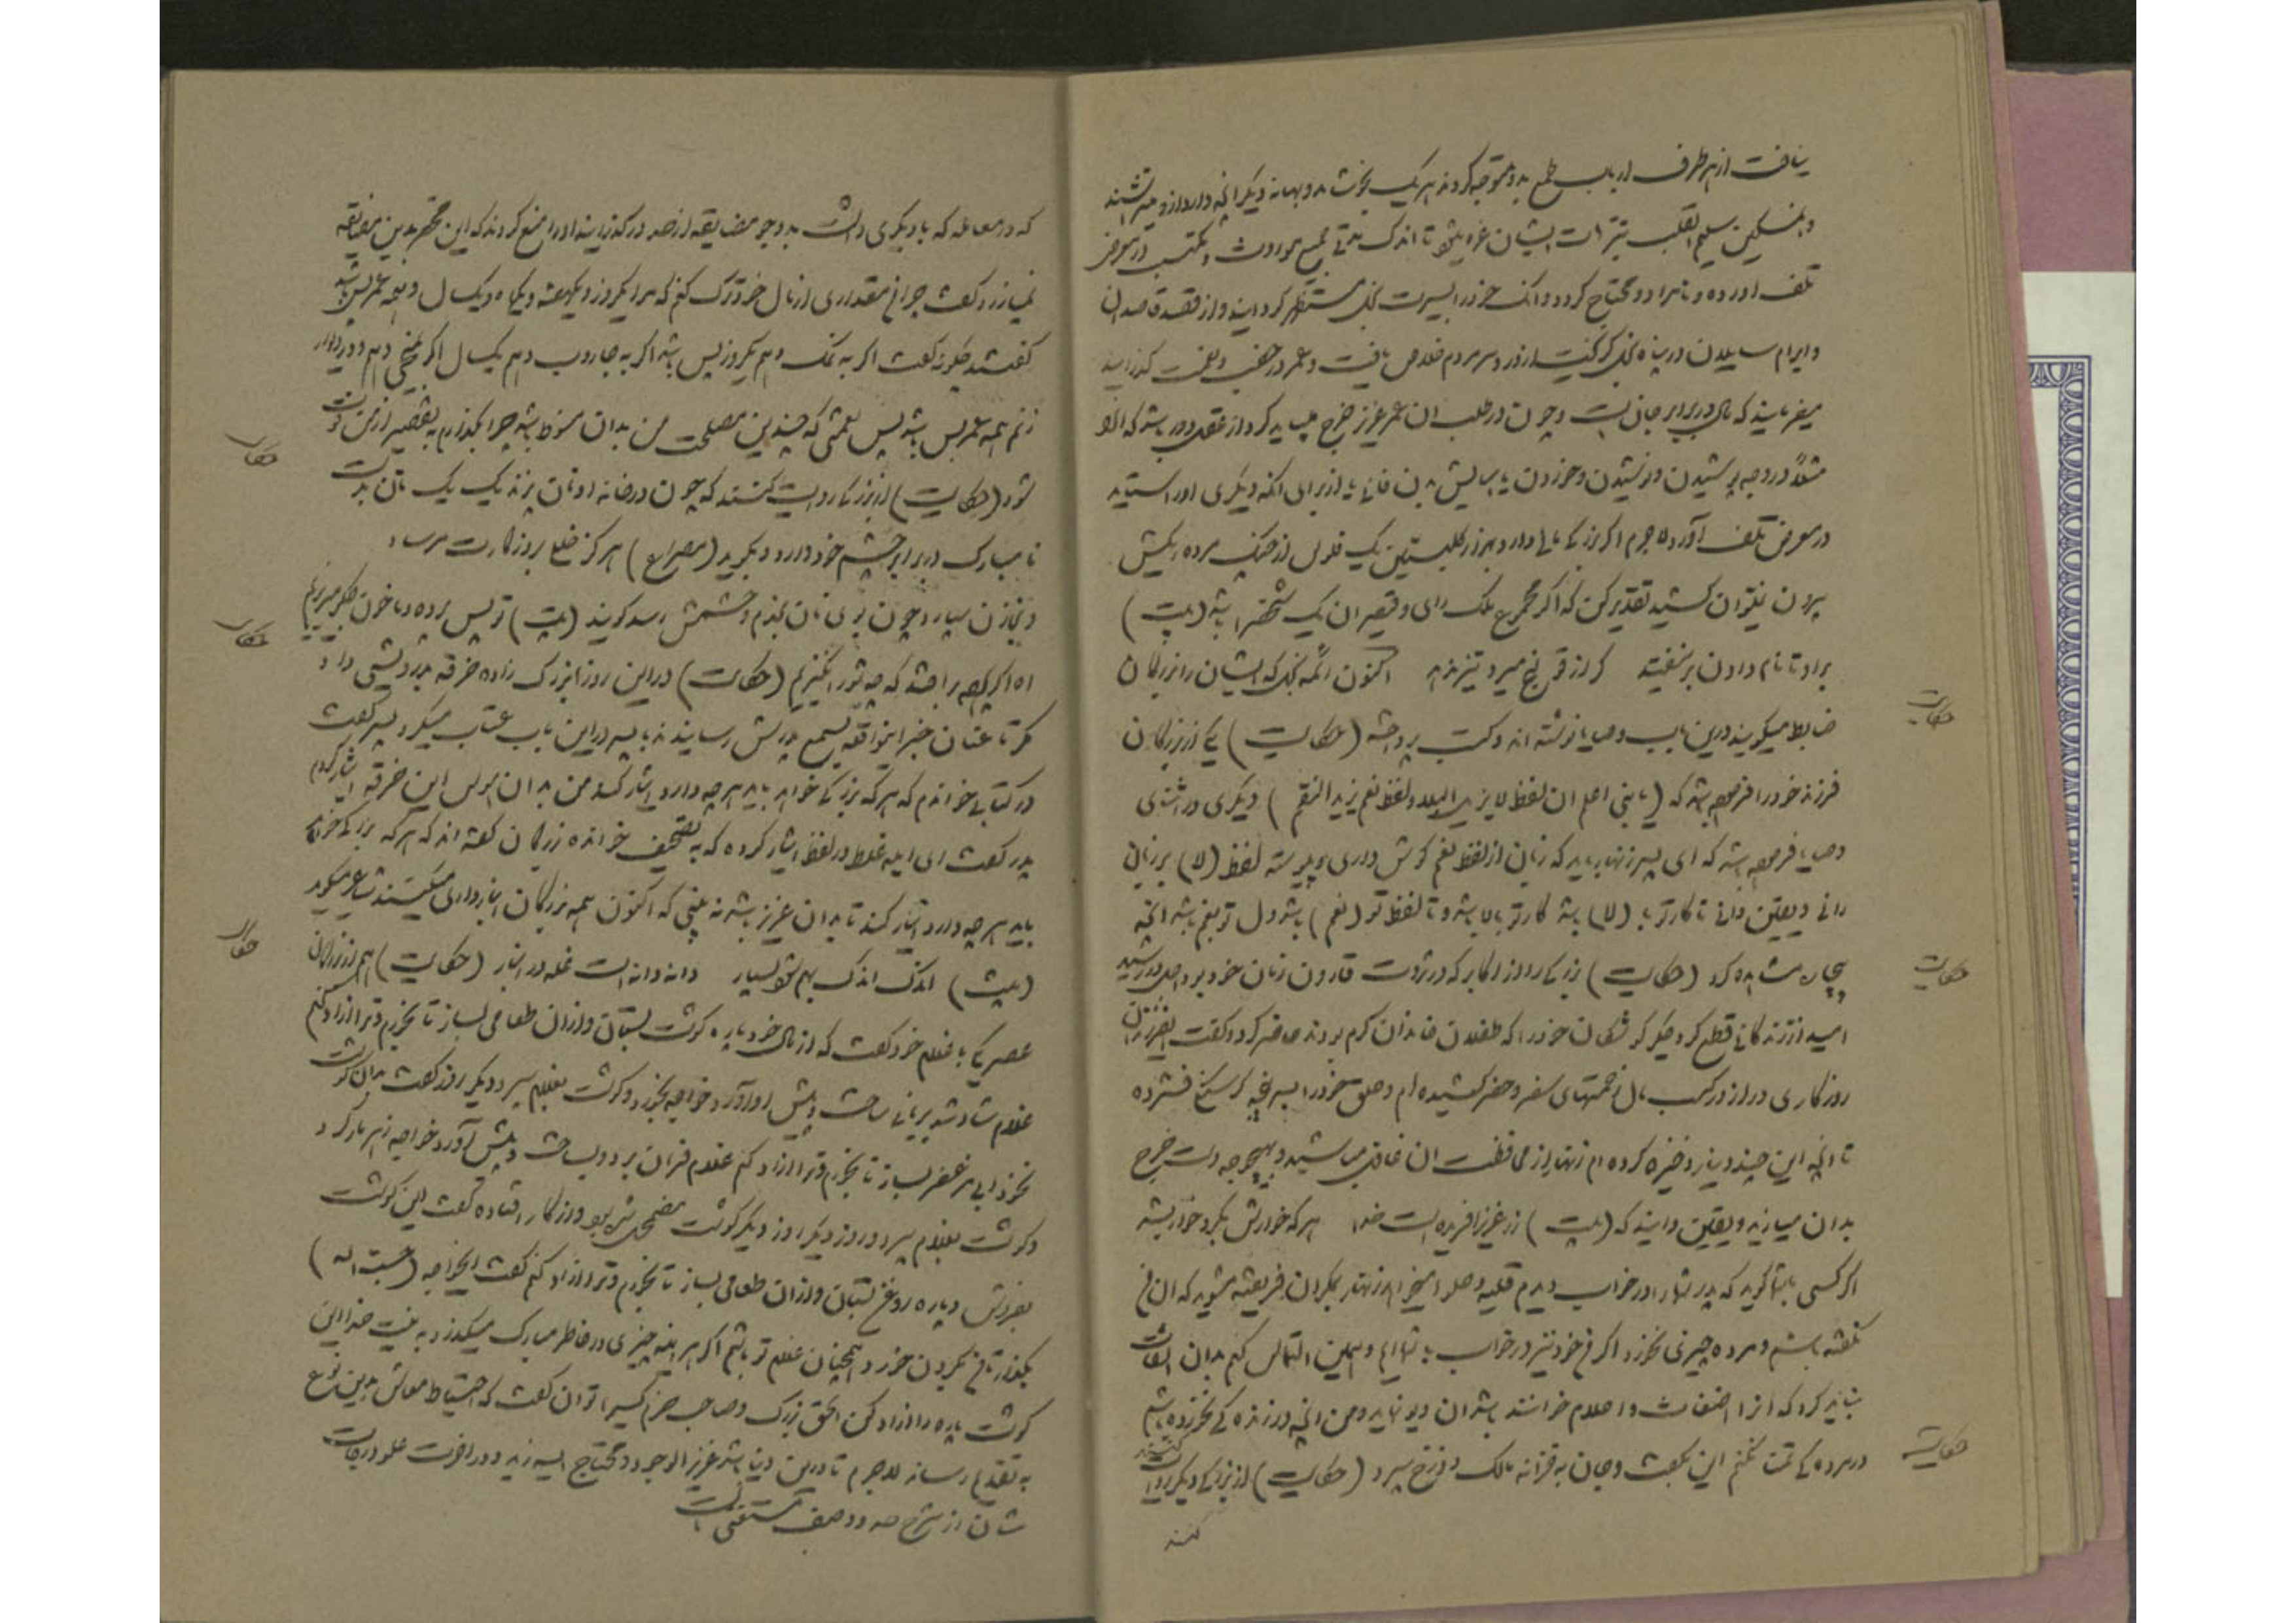 یافت از هر طرف ارباب طمع بدو متوجه گردند هر یک بخوشامد و بهانه دیگر آنچه دارد ازو میتراشند
و آن مسکین سلیم القلب بترهات ایشان غره میشود تا اندک مدتی جمیع موروث و مکتسب در معرض
تلف آورده و نامراد و محتاج گردد و آنک خود را بسیرت بخل مستظهر گرداند و از قصد قاصدان
و ابرام سایلان در پناه بخل گریخت از دردسر مردم خلاص یافت و عمر در خصب و نعمت گذرانید
میفرمایند که مال در برابر جانست و چون در طلب آن عمر عزیز خرج میباید کرد از عقل دور باشد که آنرا
مثلاً در وجه پوشیدن و نوشیدن و خوردن یا آسایش بدن فانی یا از برای آنکه دیگری او را ستاید
در معرض تلف آورد لاجرم اگر بزرگی مالی دارد بهزار کلبتین یک فلوس از چنگ مرده ریگش
بیرون نمیتوان کشید تقدیر کن که اگر مجموع ملک رای و قیصر آن یک شخص را باشد (بیت)
برد تا نام دادن بر نیفتد گر از قولنج میرد تیز ندهد اکنون ائمه بخل که ایشان را بزرگان
ضابط میگویند درین باب وصایا نوشته اند و کتب پرداخته (حکایت) یکی از بزرگان
فرزند خود را فرموده باشد که (یا بنی اعلم ان لفظ لا یزیل البلاء و لفظ نعم یزید النقم) دیگری در اثنای
وصایا فرموده باشد که ای پسر زنهار باید که زبان از لفظ نعم گوش داری و پیوسته لفظ (لا) بر زبان
رانی و یقین دانی تا کار تو با (لا) باشد کار تو بالا باشد و تا لفظ تو (نعم) باشد دل تو بغم باشد آنچه
بیچاره مشاهده کرد (حکایت) بزرگی را از اکابر که در ثروت قارون زمان خود بود اجل در رسید
امید از زندگانی قطع کرد جگر گوشگان خود را که طفلان خاندان کرم بودند حاضر کرد و گفت ای فرزندان
روزگاری دراز در کسب مال زحمتهای سفر و حضر کشیده ام و حلق خود را بسر پنجه گرسنگی فشرده
تا آنچه این چند دینار ذخیره کرده ام زنهار از محافظت آن غافل مباشید و بهیچ وجه دست خرج
بدان میازید و یقین دانید که (بیت) زر عزیز آفریده است خدا هر که خوارش بکرد خوار بشد
اگر کسی با شما گوید که پدر شما را در خواب دیدم قلیه و حلوا میخواهد زنهار بمکر آن فریفته مشوید که آن من
نگفته باشم و مرده چیزی نخورد اگر من خود نیز در خواب با شما نمایم و همین التماس کنم بدان التفات
نباید کرد که آنرا اضغاث و احلام خوانند باشد آن دیو نماید و من آنچه در زندگی نخورده باشم
در مردگی تمنا نکنم این بگفت و جان به خزانه مالک دوزخ سپرد (حکایت) از بزرگی دیگر روایت
کنند
حکایت
حکایت
حکایت
که در معامله که با دیگری داشت بدو جو مضایقه از حد درگذرانید او را منع کردند که این محقر بدین مضایقه
نمیارزد گفت چرا من مقداری از مال خود ترک کنم که مرا یکروز و یکهفته و یکماه و یکسال و همه عمر بس باشد
گفتند چگونه گفت اگر به نمک دهم یکروز بس باشد اگر به جاروب دهم یک سال اگر بمیخی دهم و در دیوار
زنم همه عمر بس باشد پس نعمتی که چندین مصلحت من بدان منوط باشد چرا بگذارم به تقصیر از من فوت
شود (حکایت) از بزرگی روایت کنند که چون در خانه او نان پزند یک یک نان بدست
نامبارک در برابر چشم خود دارد و بگوید (مصراع) هرگز خللی بروزگارت مرساد
و بخازن سپارد چون بوی نان بخدم و حشمش رسد گویند (بیت) تو پس پرده و ما خون جگر میریزیم
آه اگر پرده برافتد که چه شور انگیزیم (حکایت) در این روزها بزرگ زاده خرقه بدرویشی داد
مگر طاعنان خبر این واقعه بسمع پدرش رسانیدند با پسر در این باب عتاب میکرد پسر گفت
در کتابی خواندم که هر که بزرگی خواهد باید هر چه دارد ایثار کند من بدان هوس این خرقه ایثار کردم
پدر گفت ای ابله غلط در لفظ ایثار کرده که به تصحیف خوانده بزرگان گفته اند که هر که بزرگی خواهد
باید هر چه دارد انبار کند تا بدان عزیز باشد نه بینی که اکنون همه بزرگان انبارداری میکنند شاعر میگوید
(بیت) اندک اندک بهم شود بسیار دانه دانه است غله در انبار (حکایت) هم از بزرگان
عصر یکی با غلام خود گفت که از مال خود پاره گوشت بستان و از آن طعامی بساز تا بخورم و ترا آزاد کنم
غلام شاد شد بریانی ساخت و پیش او آورد خواجه بخورد و گوشت بغلام سپرد دیگر روز گفت بدان گوشت
نخودابی مزعفر بساز تا بخورم و ترا آزاد کنم غلام فرمان برد و بساخت و پیش آورد خواجه زهر مار کرد
و گوشت بغلام سپرد و روز دیگر گوشت مضمحل شده بود و از کار افتاده گفت این گوشت
بفروش و پاره روغن بستان و از آن طعامی بساز تا بخورم و ترا آزاد کنم گفت ای خواجه (حسبة لله)
بگذار تا من بگردن خود همچنان غلام تو باشم اگر هر آینه چیزی در خاطر مبارک میگذرد به نیت خدا این
گوشت پاره را آزاد کن الحق بزرگ و صاحب حزم کسی را توان گفت که احتیاط معاش بدین نوع
به تقدیم رساند لاجرم تا درین دنیا باشد عزیز الوجود و محتاج الیه زید و در آخرت علو درجات
شان از شرح حد و وصف مستغنی است
حکایت
حکایت
حکایت